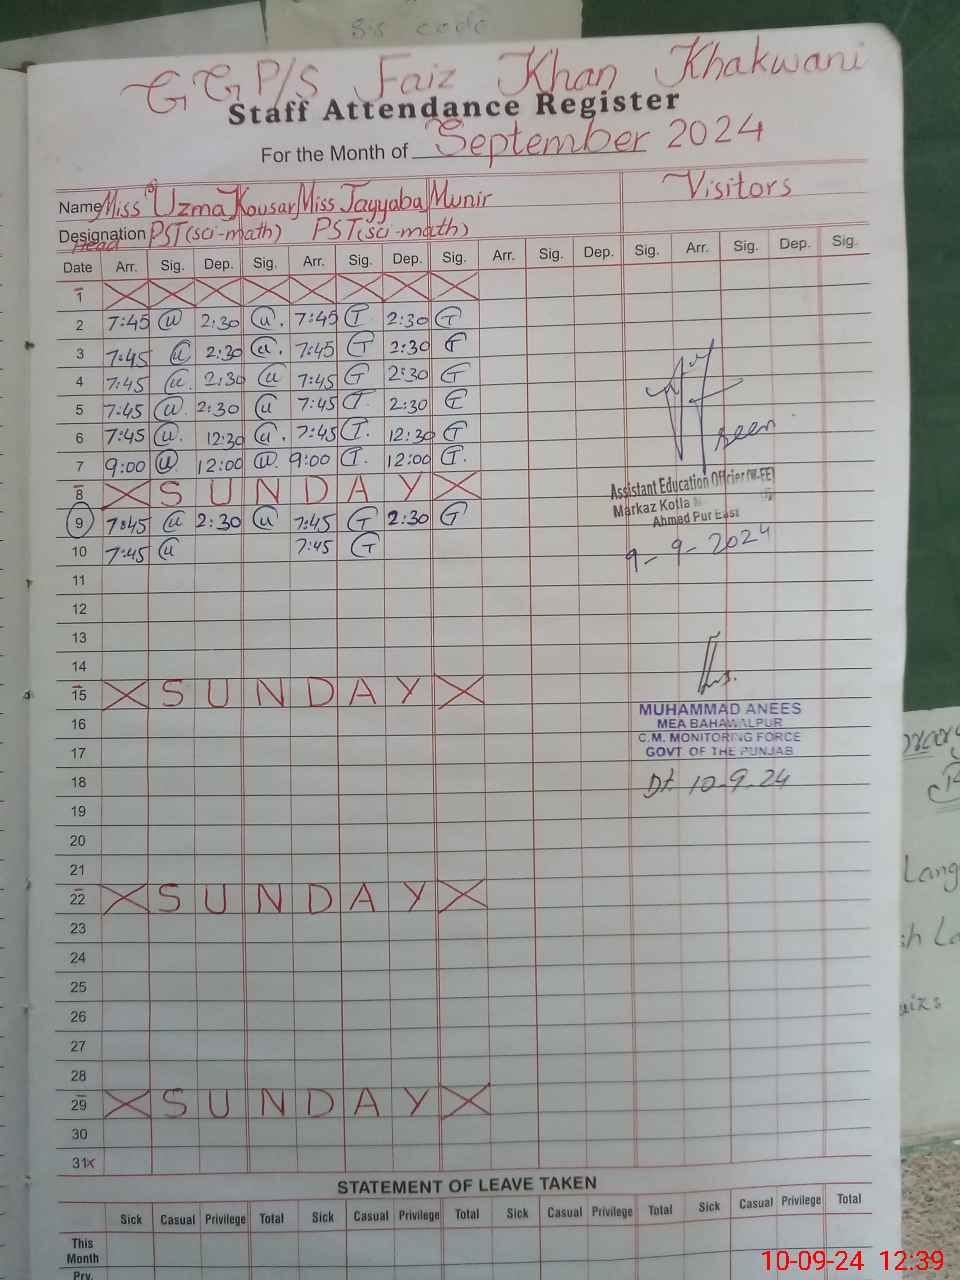 sis code
GGP/S Faiz Khan Khakwani
Staff Attendance Register
For the Month of September 2024
Name Miss Uzma Kousar Miss Tayyaba Munir Visitors
Designation PST(sci-math) PST(sci-math)
Head
Date Arr. Sig. Dep. Sig. Arr. Sig. Dep. Sig. Arr. Sig. Dep. Sig. Arr. Sig. Dep. Sig.
1
2 7:45 U 2:30 U. 7:45 T 2:30 T
3 7:45 U 2:30 U. 7:45 T 2:30 T
4 7:45 U. 2:30 U 7:45 T 2:30 T
5 7:45 U. 2:30 U 7:45 T. 2:30 T
6 7:45 U. 12:30 U. 7:45 T. 12:30 T
7 9:00 U 12:00 U 9:00 T. 12:00 T.
8 SUNDAY
9 7:45 U 2:30 U 7:45 T 2:30 T
10 7:45 U 7:45 T
11
12
13
14
15 SUNDAY
16
17
18
19
20
21
22 SUNDAY
23
24
25
26
27
28
29 SUNDAY
30
31x
Seen
Assistant Education Officier (W-EE)
Markaz Kotla
Ahmed Pur East
9-9-2024
MUHAMMAD ANEES
MEA BAHAWALPUR
C.M. MONITORING FORCE
GOVT OF THE PUNJAB
Dt 10-9-24
STATEMENT OF LEAVE TAKEN
Sick Casual Privilege Total Sick Casual Privilege Total Sick Casual Privilege Total Sick Casual Privilege Total
This
Month
Prv.
Lang
10-09-24 12:39